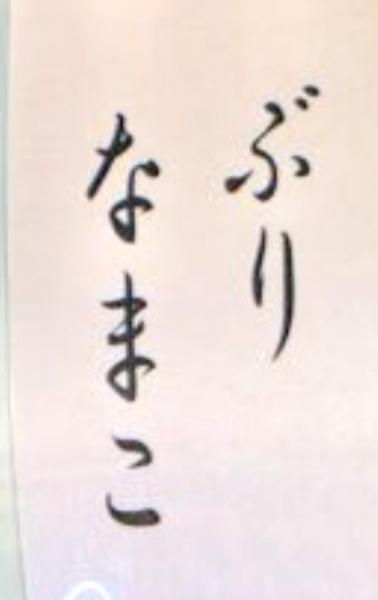 ぶり
なまこ